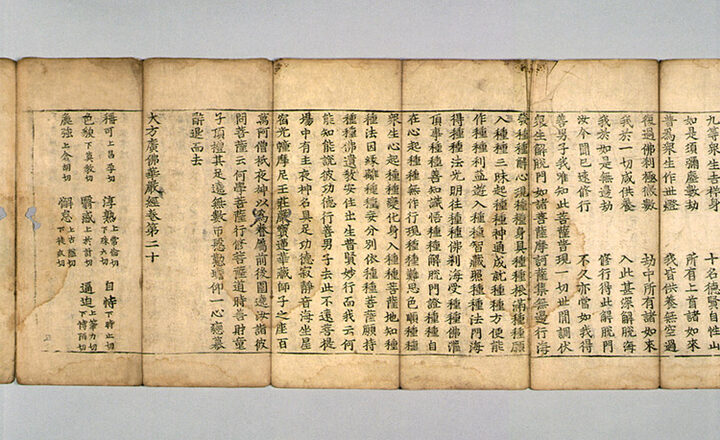 九等眾生吉祥身　十名德賢自性山
如是須彌塵數劫　所有上首諸如來
普為眾生作世燈　我皆供養無空過
後過佛剎極微數　劫中所有諸如來
我於一切咸供養　入此甚深解脫海
我於如是無邊劫　修行得此解脫門
汝今聞已速修行　不久亦當如我得
善男子我唯知此菩薩普現一切世閒調伏
眾生解脫門如諸菩薩摩訶薩集無邊行海
發種種解心現種種身具種種根滿種種願
入種種三昧起種種神通成就種種方便能
作種種利益遊入種種智藏照種種法門海
得種種法光明往種種佛剎海受種種佛灌
頂事種種善知識悟種種解脫門證種種自
在心起種種無作行現種種難思色順種種
眾生心起種種變化身入種種菩薩地知種
種法因緣離種種妄分別依種種菩薩願持
種種佛遺教安住出生普賢妙行而我云何
能知能說彼功德行善男子去此不遠菩提
場中有主夜神名具足功德寂靜音海坐星
宿光幢摩尼王莊嚴寶蓮華藏師子之座百
萬阿僧祇夜神以為眷屬前後圍遶汝詣彼
問菩薩云何學菩薩行修菩薩道時善財童
子頂禮其足遶無數帀慇懃瞻仰一心戀慕
辭退而去
大方廣佛華嚴經卷第二十
稱可上昌孕切　淳熟上常倫切下殊六切　自恃下時止切
色貌下莫教切　翳滅上於計切　逼迫上筆力切下博陌切
麁強上倉胡切　懈怠上古隘切下徒亥切